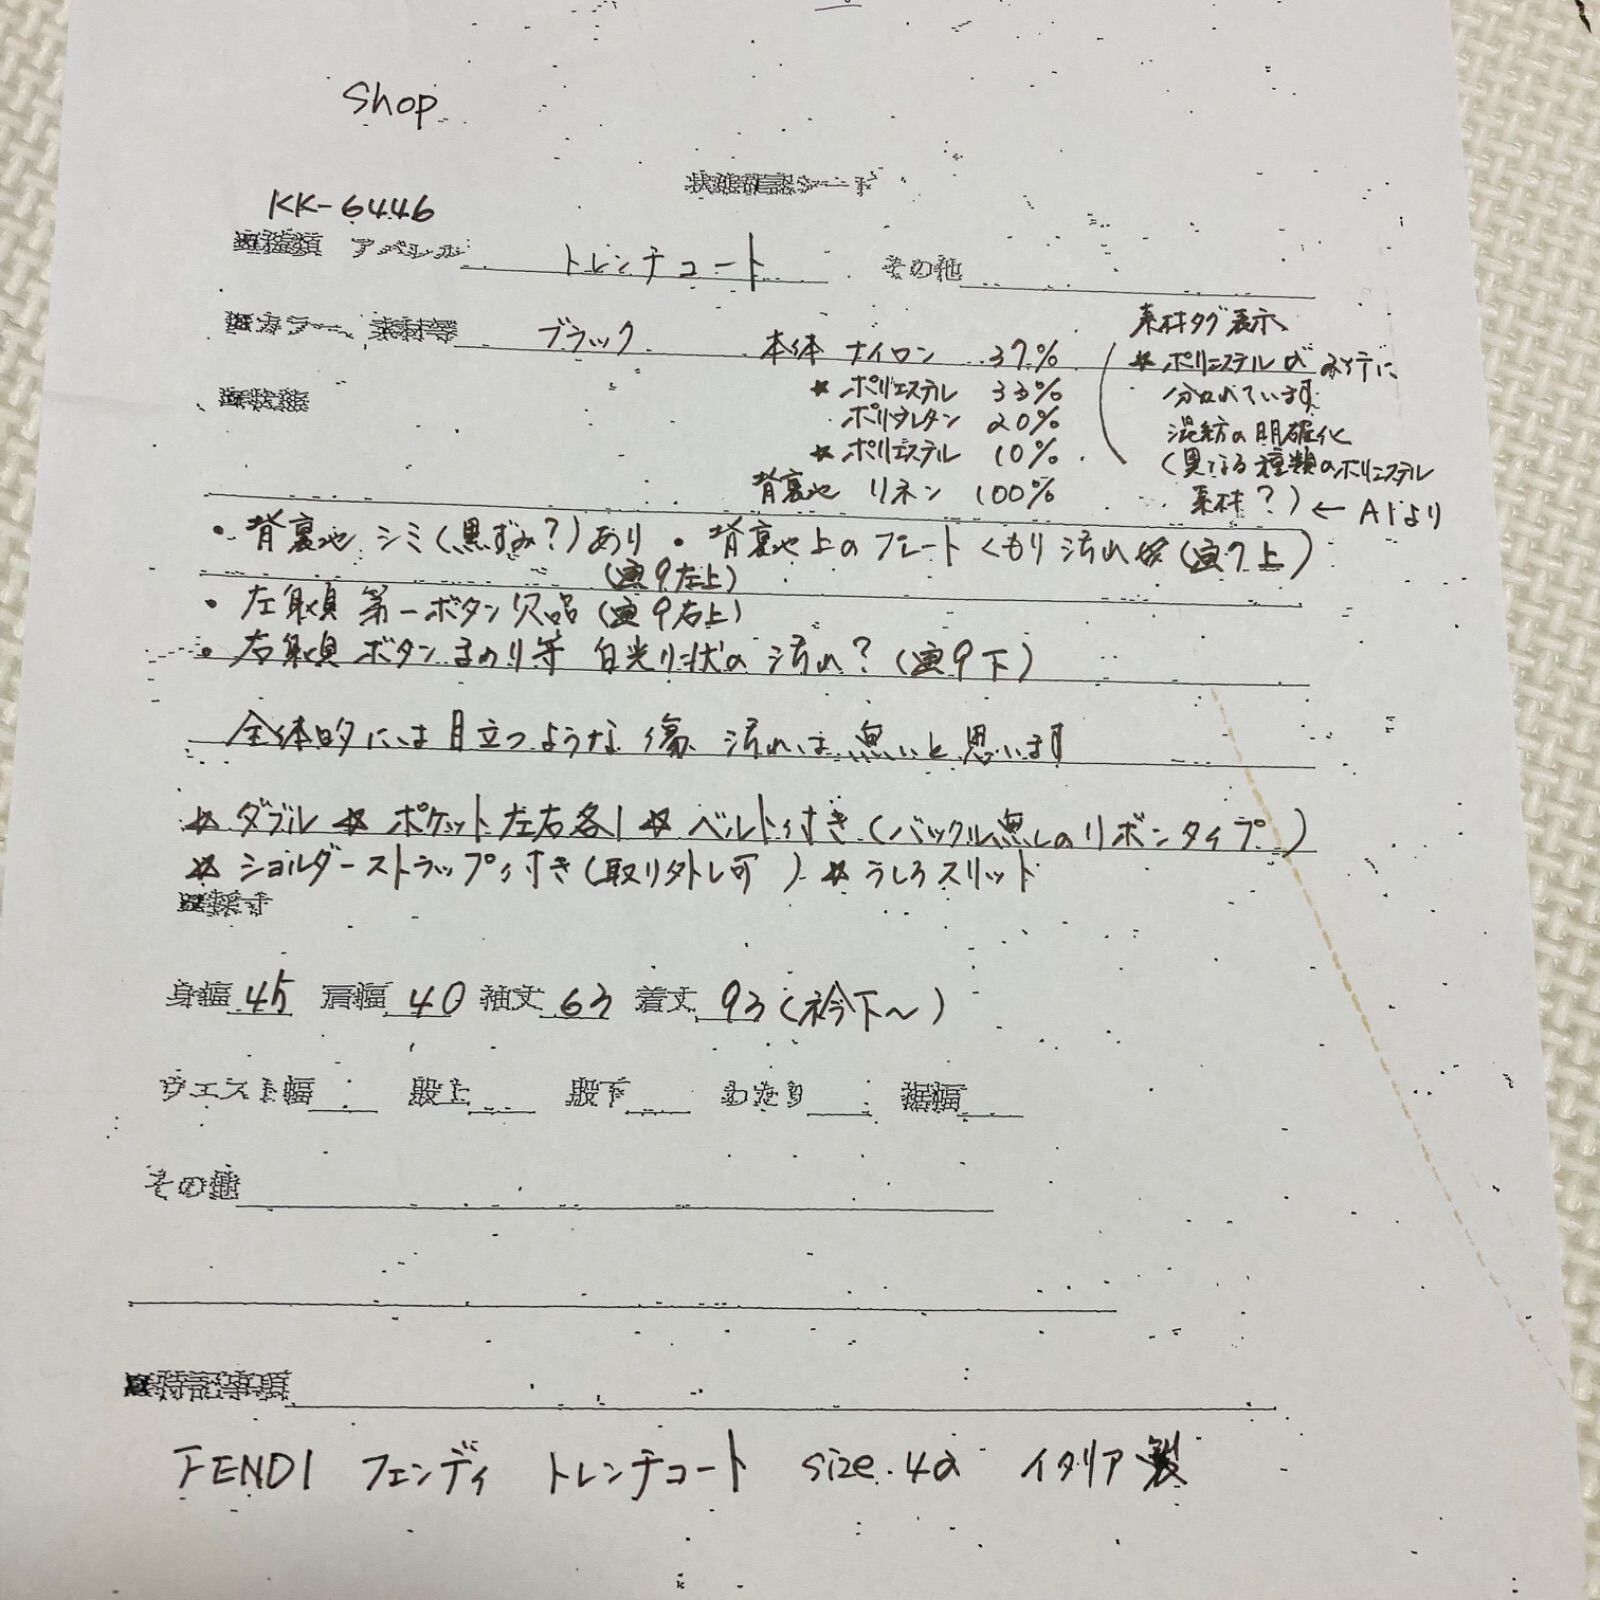 Shop
状態確認シート
KK-6446
■種類 アパレル トレンチコート その他
■カラー、素材等 ブラック 本体 ナイロン 37%
★ポリエステル 33%
ポリウレタン 20%
★ポリエステル 10%
背裏地 リネン 100%
素材タグ表示
★ポリエステルが2行に
分かれています
混紡の明確化
(異なる種類のポリエステル
素材?) ← AIより
■状態
・背裏地 シミ(黒ずみ?)あり ・背裏地上のプレート くもり 汚れ等(画7上)
(画9左上)
・左身頃 第一ボタン欠品(画9右上)
・右身頃 ボタンまわり等 白光り状の汚れ?(画9下)
全体的には目立つような傷 汚れは無いと思います
★ダブル ★ポケット左右各1 ★ベルト付き(バックル無しのリボンタイプ)
★ショルダーストラップ付き(取り外し可) ★うしろスリット
■採寸
身幅 45 肩幅 40 袖丈 63 着丈 93(衿下〜)
ウエスト幅 股上 股下 わたり 裾幅
その他
■特記事項
FENDI フェンディ トレンチコート size.42 イタリア製